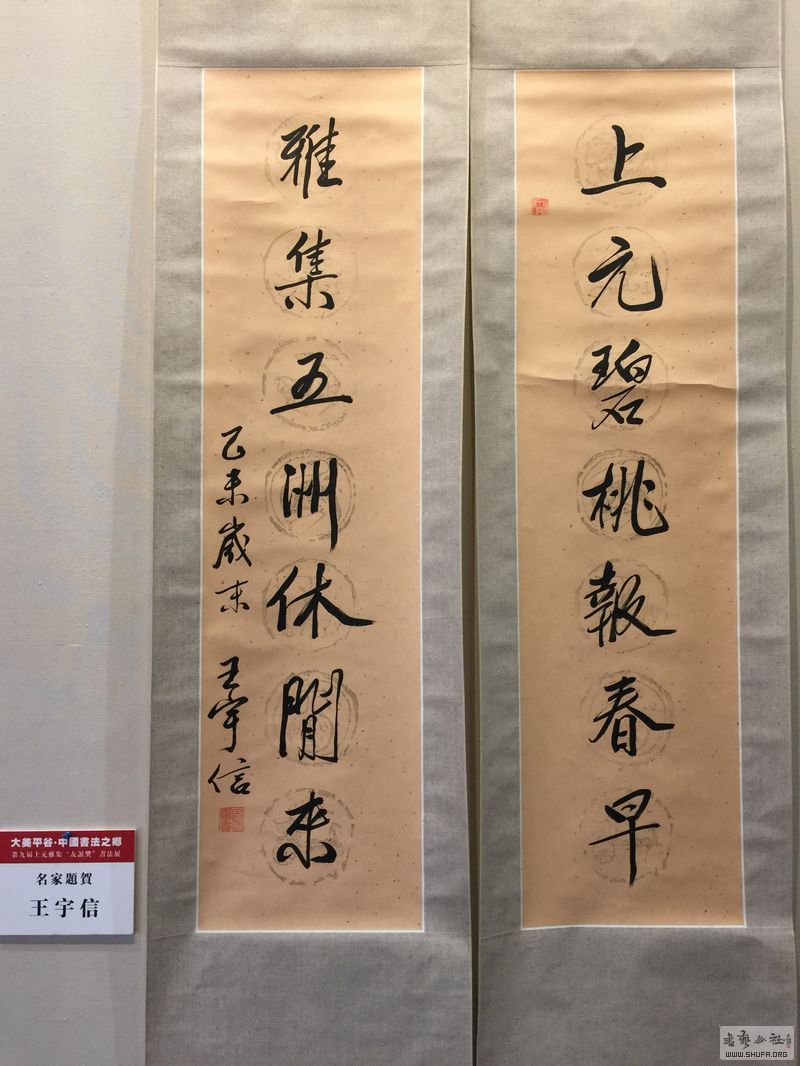 上元碧桃報春早
雅集五洲休閒來
乙未歲末 王宇信
大美平谷·中國書法之鄉
第九届上元雅集“友誼獎”書法展
名家題賀
王宇信
書藝公社
WWW.SHUFA.ORG